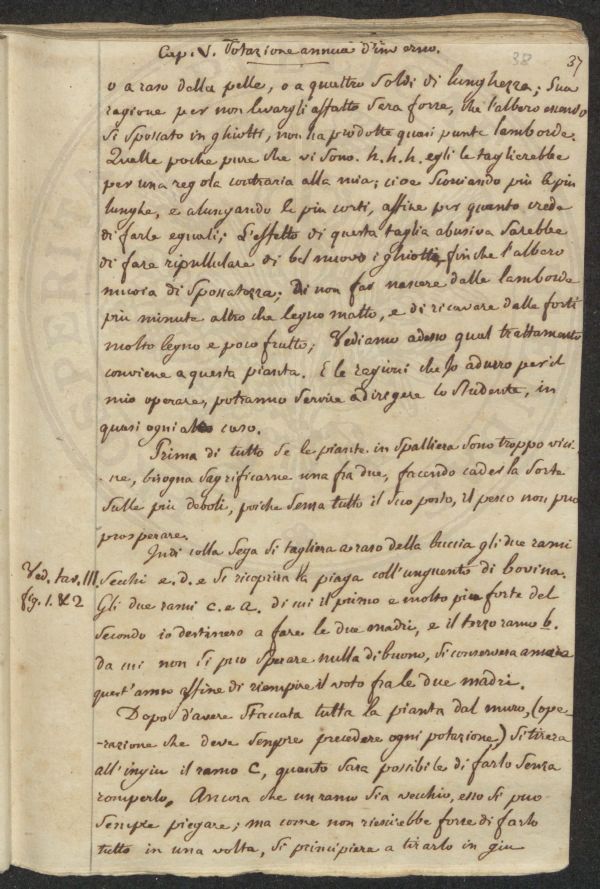 Cap. V. Potazione annua d'inverno.
38 37
o a raso della pelle, o a quattro soldi di lunghezza; Sua
ragione per non levargli affatto Sera forse, che l'albero essendo
Si spossato in ghiotti, non ha prodotte quasi punte lamborde.
Quelle poche pure che vi sono. h.h.h. egli le taglierebbe
per una regola contraria alla mia; cioe Scorciando più le piu
lunghe, e alungando le piu corti, affine per quanto crede
di farle eguali; L'effetto di questa taglia abusiva Sarebbe
di fare ripullulare di bel nuovo i ghiotti, finche l'albero
muoia di Spossatezza; Di non far nascere dalle lamborde
più minute altro che legno matto, e di ricavare dalle forti
molto legno e poco frutto; Vediamo adesso qual trattamento
conviene a questa pianta. E le ragioni che Io adurro per il
mio operare, potranno Servire a dirigere lo Studente, in
quasi ogni altro caso.
Prima di tutto Se le piante in Spalliera sono troppo vici-
ne, bisogna Sagrificarne una fra due, facendo cader la Sorte
Sulle più deboli, poiche Senza tutto il Suo posto, il pesco non puo
prosperare.
Indi colla Sega Si tagliera a raso della buccia gli due rami
Ved. tav. III. Secchi e. d. e Si ricoprira la piaga coll'unguento di bovina.
fig. 1. & 2 Gli due rami c. e a. di cui il primo e molto piu forte del
Secondo io destinero a fare le due madri, e il terzo ramo b.
da cui non Si puo Sperare nulla di buono, Si conservera ancora
quest'anno affine di riempire il voto fra le due madri.
Dopo d'avere Staccata tutta la pianta dal muro, (ope-
-razione che deve Sempre precedere ogni potazione,) Si tirera
all'ingiu il ramo C, quanto Sara possibile di farlo Senza
romperlo. Ancora che un ramo Sia vecchio, esso Si puo
Sempre piegare; ma come non riescirebbe forse di farlo
tutto in una volta, Si principiera a tirarlo in giu